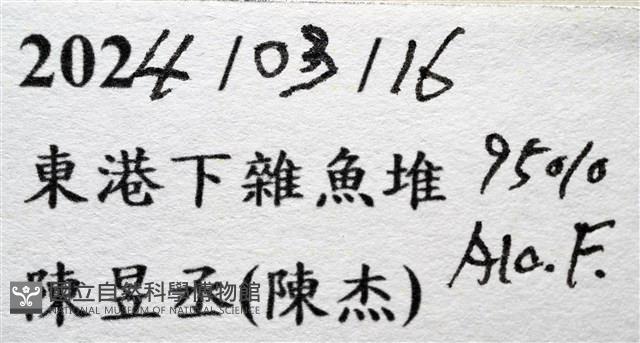 2024/03/16
東港下雜魚堆 95%
陳昱丞(陳杰) Alc. F.
國立自然科學博物館
NATIONAL MUSEUM OF NATURAL SCIENCE